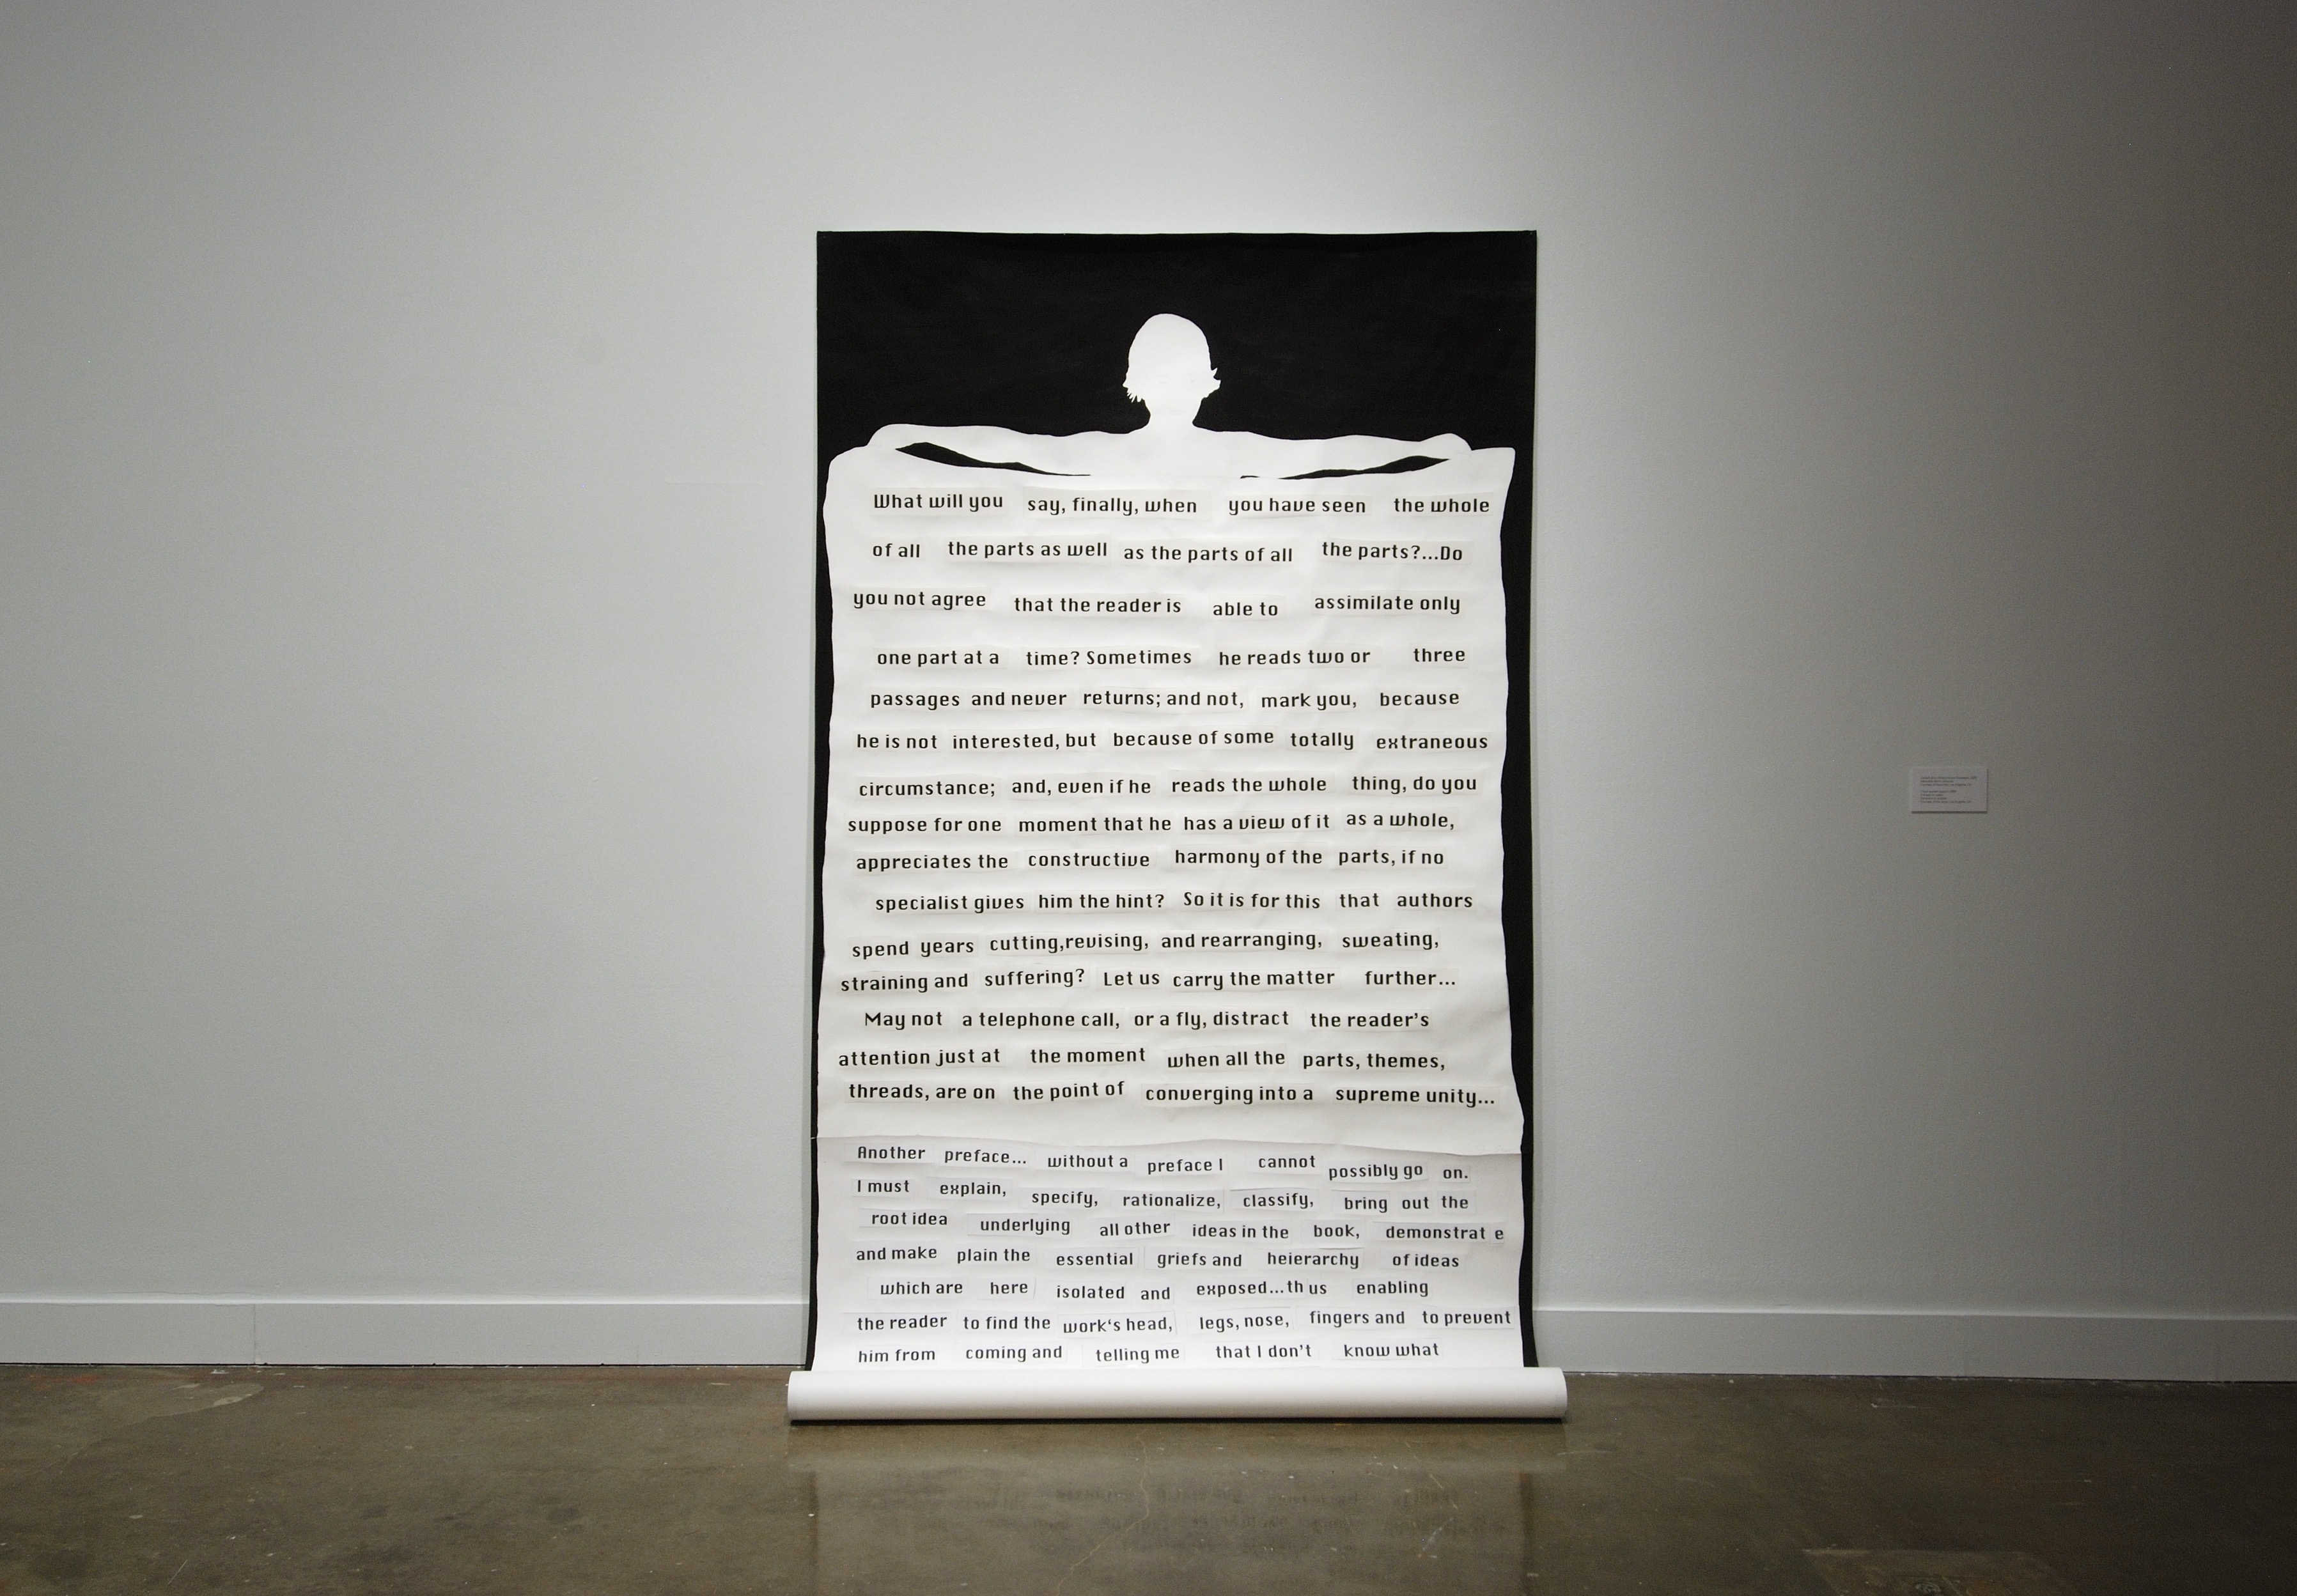 What will you say, finally, when you have seen the whole
of all the parts as well as the parts of all the parts?...Do
you not agree that the reader is able to assimilate only
one part at a time? Sometimes he reads two or three
passages and never returns; and not, mark you, because
he is not interested, but because of some totally extraneous
circumstance; and, even if he reads the whole thing, do you
suppose for one moment that he has a view of it as a whole,
appreciates the constructive harmony of the parts, if no
specialist gives him the hint? So it is for this that authors
spend years cutting,revising, and rearranging, sweating,
straining and suffering? Let us carry the matter further...
May not a telephone call, or a fly, distract the reader's
attention just at the moment when all the parts, themes,
threads, are on the point of converging into a supreme unity...
Another preface... without a preface I cannot possibly go on.
I must explain, specify, rationalize, classify, bring out the
root idea underlying all other ideas in the book, demonstrat e
and make plain the essential griefs and heierarchy of ideas
which are here isolated and exposed...th us enabling
the reader to find the work's head, legs, nose, fingers and to prevent
him from coming and telling me that I don't know what